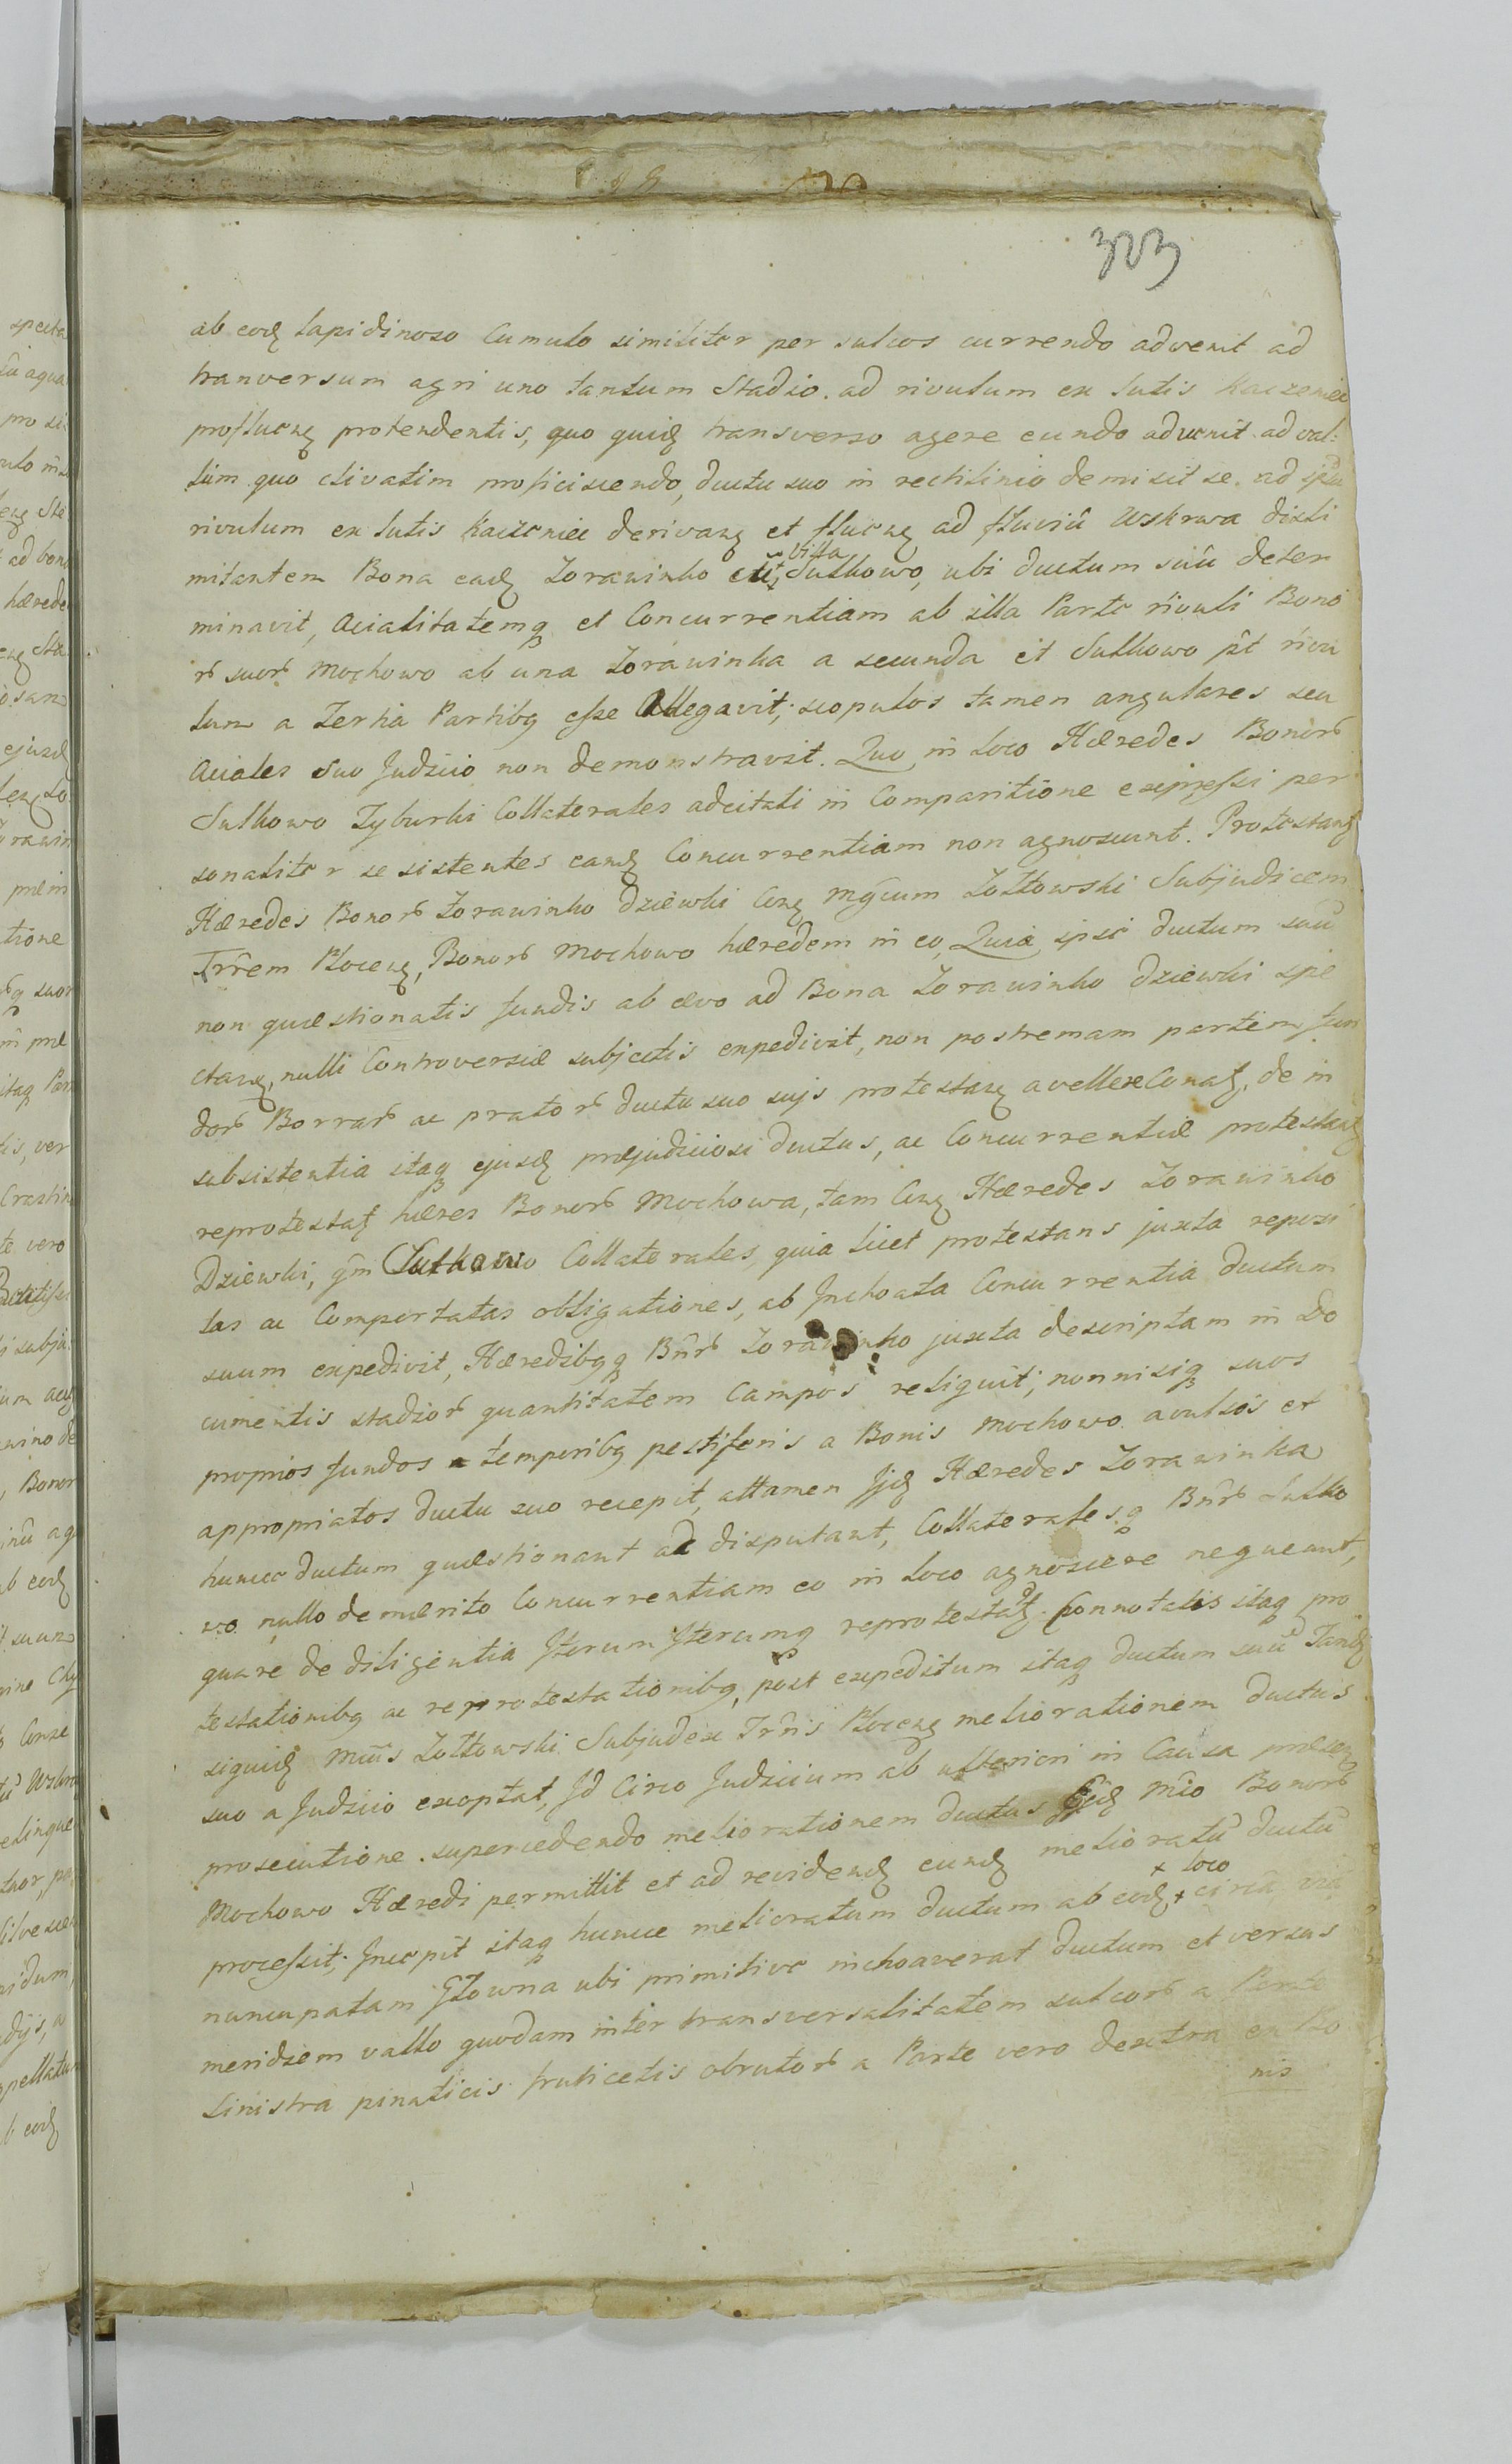 323
ab eodę lapidinoso Cumulo similiter per sulcos currendo advenit ad
tranversum agri uno tantum Stadio. ad rivulum ex lutis Kaczeniec
profluenę protendentis, quo quidę transverso agere eundo advenit ad val:
lum quo clivatim proficiscendo, ductu suo in rectilinio demisit se. ad ipsũ
rivulum ex lutis Kaczeniec derivanę et fluenę ad fluviũ Wskrwa disli
mitantem Bona eadę Zorawinko et villa Sulkowo, ubi ductum suũ deter
minavit, acialitatemq et Concurrentiam ab illa Parte rivuli Bono
rũ suorũ Mochowo ab una Zorawinka a secunda et Sulkowo pt rivu
lum a Tertia Partibq esse Allegavit; scopulos tamen angulares seu
Aciales suo Judicio non demonstravit. Quo in Loco Hæredes Bonorũ
Sulkowo Zyburki Collaterales adcitati in Comparitione expressi per
sonaliter se sistentes eandę Concurrentiam non agnoscunt. Protestantę
Hæredes Bonorũ Zorawinko Dziewki Conę Mgcum Zołtowski Subjudicem
Trrem Plocenę, Bonorũ Mochowo hæredem in eo, Quia ipse ductum suũ
non quæstionatis fundis ab ævo ad Bona Zorawinko Dziewki spe
ctanę, nulli Controversiæ subjectis expedivit, non postremam partem fun
dorũ Borrarũ ac pratorũ ductu suo sujs protestanę avellere Conatę, de in
subsistentia itaq ejusdę præjudiciosi ductus, ac Concurrentiæ protestantę
reprotestatę hæres Bonorũ Mochowa, tam Conę Hæredes Zorawinko
Dziewki, qm Sulkowo Collaterales, quia licet protestans juxta reposi
tas ac Comportatas obligationes, ab Inchoata Concurrentia ductum
suum expedivit, Hæredibqq Bnrũ Zorawinko juxta descriptam in Do
cumentis stadiorũ quantitatem Campos reliquit; nonnisiq suos
proprios fundos a temporibq pestiferis a Bonis Mochowo avulsos et
appropriatos ductu suo recepit, attamen Ijdę Hæredes Zorawinka
huncce ductum quæstionant ac disputant, Collateralesq Bnrũ Sulko
wo nullo demærito Concurrentiam eo in Loco agnoscere nequeunt,
quare de diligentia Iterum Iterumq reprotestatę. Connotatis itaq pro
testationibq ac reprotestationibq, post expeditum itaq ductum suũ Tandę
siquidę Mcus Zołtowski Subjudex Trris Plocenę meliorationem ductus
suo a Judicio exoptat, Id Circo Judicium ab ulteriori in Causa præsenę
prosecutione supercedendo meliorationem ductus Ejdę Mco Bonorũ
Mochowo Hæredi permittit et ad revidendę eundę melioratũ ductũ
processit; Incepit itaq huncce melioratum ductum ab eodę + loco circa via
nuncupatam Głowna ubi primitive inchoaverat ductum et versus
meridiem vallo quodam inter transversalitatem sulcorũ a Parte
sinistra pinaticis fruticetis obrutorũ a Parte vero dextra ex Bo
nis